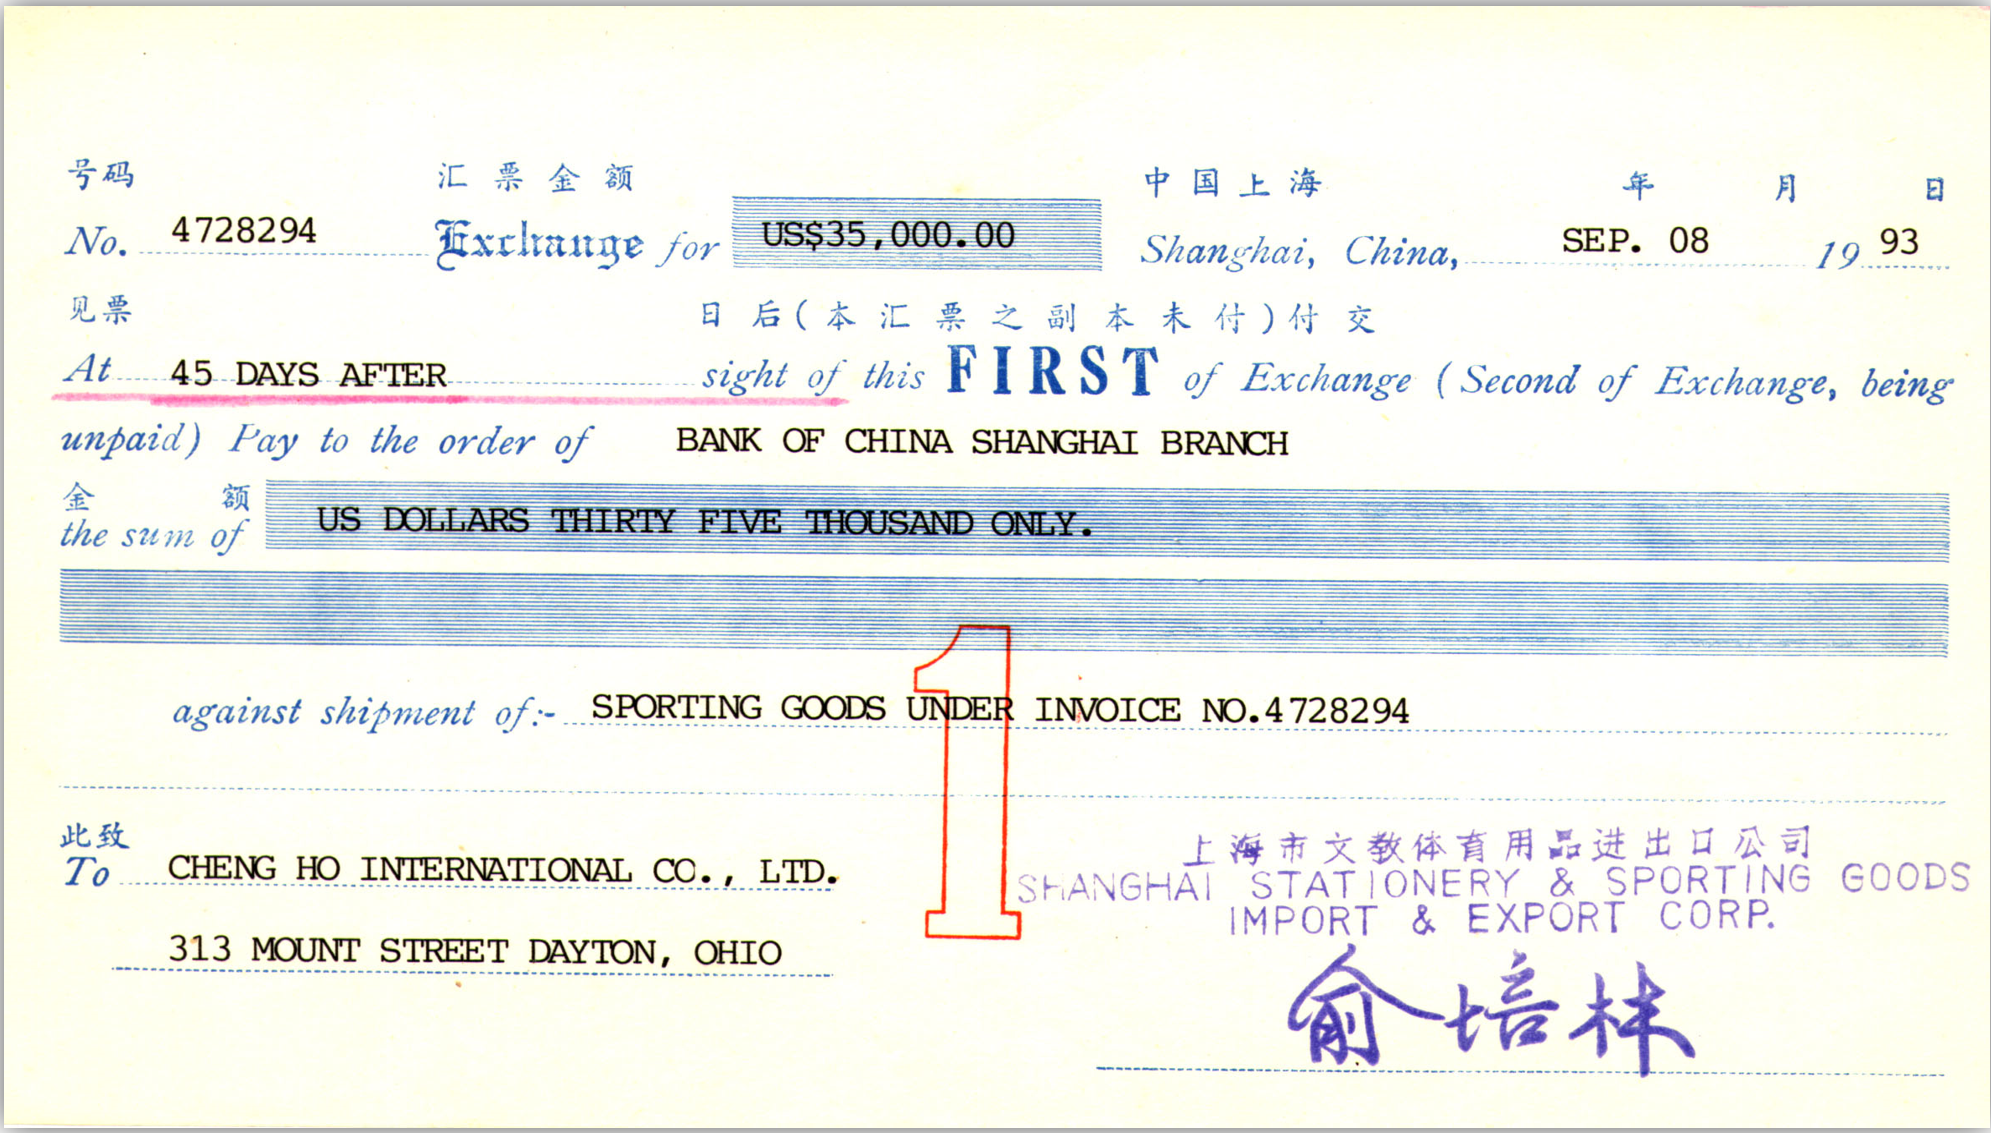 号码 汇票金额 中国上海 年 月 日
No. 4728294 Exchange for US$35,000.00 Shanghai, China, SEP. 08 19 93
见票 日后(本汇票之副本未付)付交
At 45 DAYS AFTER sight of this FIRST of Exchange (Second of Exchange, being
unpaid) Pay to the order of BANK OF CHINA SHANGHAI BRANCH
金额
the sum of US DOLLARS THIRTY FIVE THOUSAND ONLY.
against shipment of:- SPORTING GOODS UNDER INVOICE NO.4728294
1
此致
To CHENG HO INTERNATIONAL CO., LTD.
313 MOUNT STREET DAYTON, OHIO
上海市文教体育用品进出口公司
SHANGHAI STATIONERY & SPORTING GOODS
IMPORT & EXPORT CORP.
俞培林